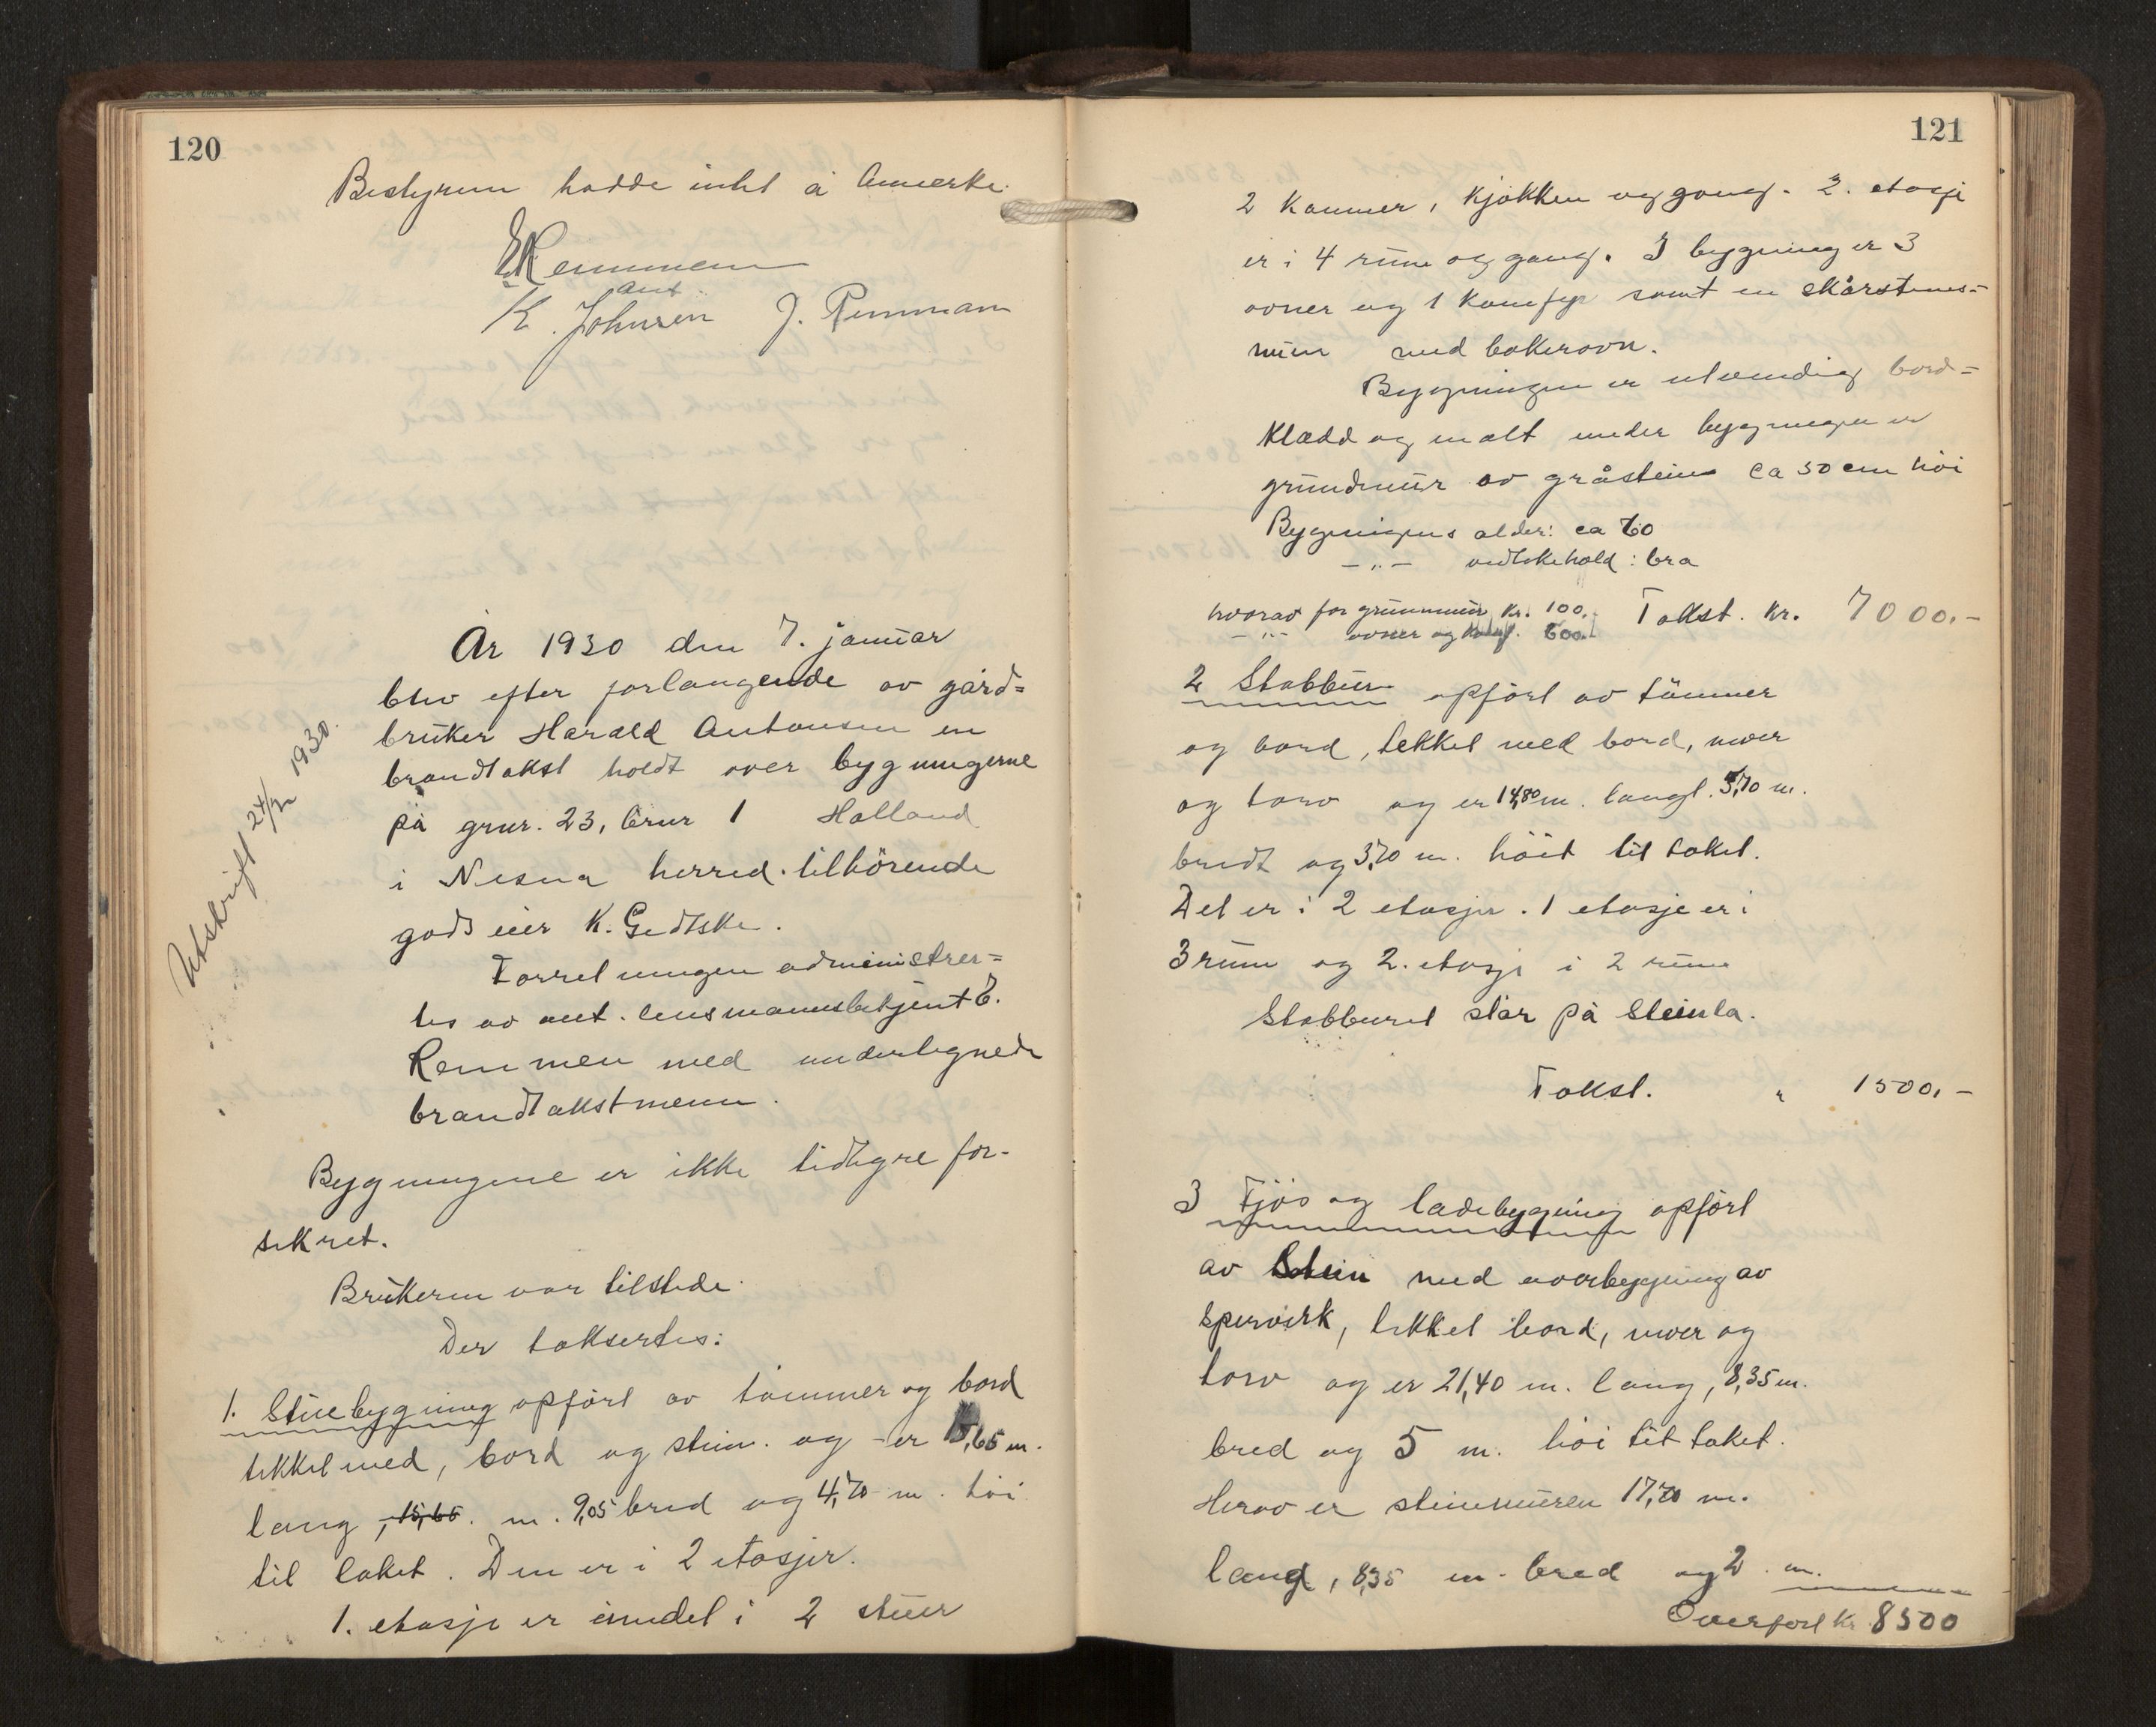 120
Bestyreren hadde intet å anmerke.
E Remmen
aut.
K. Johnsen J. Remman
År 1930 den 7. januar
blev efter forlangende av gård=
bruker Harald Antonsen en
brandtakst holdt over bygningerne
på gnr. 23, brnr 1 Holland
i Nesna herred. tilhörende
godseier K. Gedtske.
Forretningen administrer=
tes av aut. lensmannsbetjent E.
Remmen med undertegnede
brandtakstmenn.
Utskrift 24/2 1930.
Bygningene er ikke tidligre for-
sikret.
Brukeren var tilstede.
Der taksertes:
1. Stuebygning opfört av tömmer og bord
tekket med, bord og stein. og er 15,65 m.
lang, 15,65. m. 9,05 bred og 4,70 m. höi
til taket. Den er i 2 etasjer.
1. etasje er inndel i 2 stuer
121
2 kammer, kjökken og gang. 2. etasje
er i 4 rum og gang. I bygning er 3
ovner og 1 komfyr samt en skårstens=
mur med bakerovn.
Bygningen er utvendig bord=
klædd og malt under bygningen er
grundmur av gråstein ca 50 cm höi
Bygnigens alder: ca 60
-„- vedlikehold: bra
hvorav for grunnmur kr. 100. Takst. kr. 7000,-
-„- ovner og komf. 600.
2 Stabbur opfört av tömmer
og bord, tekket med bord, never
og torv og er 14,80 m. langt. 5,70 m.
bredt og 3,70 m. höit til taket.
Det er i 2 etasjer. 1 etasje er i
3 rum og 2. etasje i 2 rum
Stabburet står på Steinla.
Takst. „ 1500,-
3 Fjös og ladebygning opfört
av Stein med overbygning av
spervirk, tekket bord, never og
torv og er 21,40 m. lang, 8,35 m.
bred og 5 m. höi til taket.
Herav er steinmuren 17,70 m.
lang, 8,35 m. bred og 2 m.
Overfört kr 8500